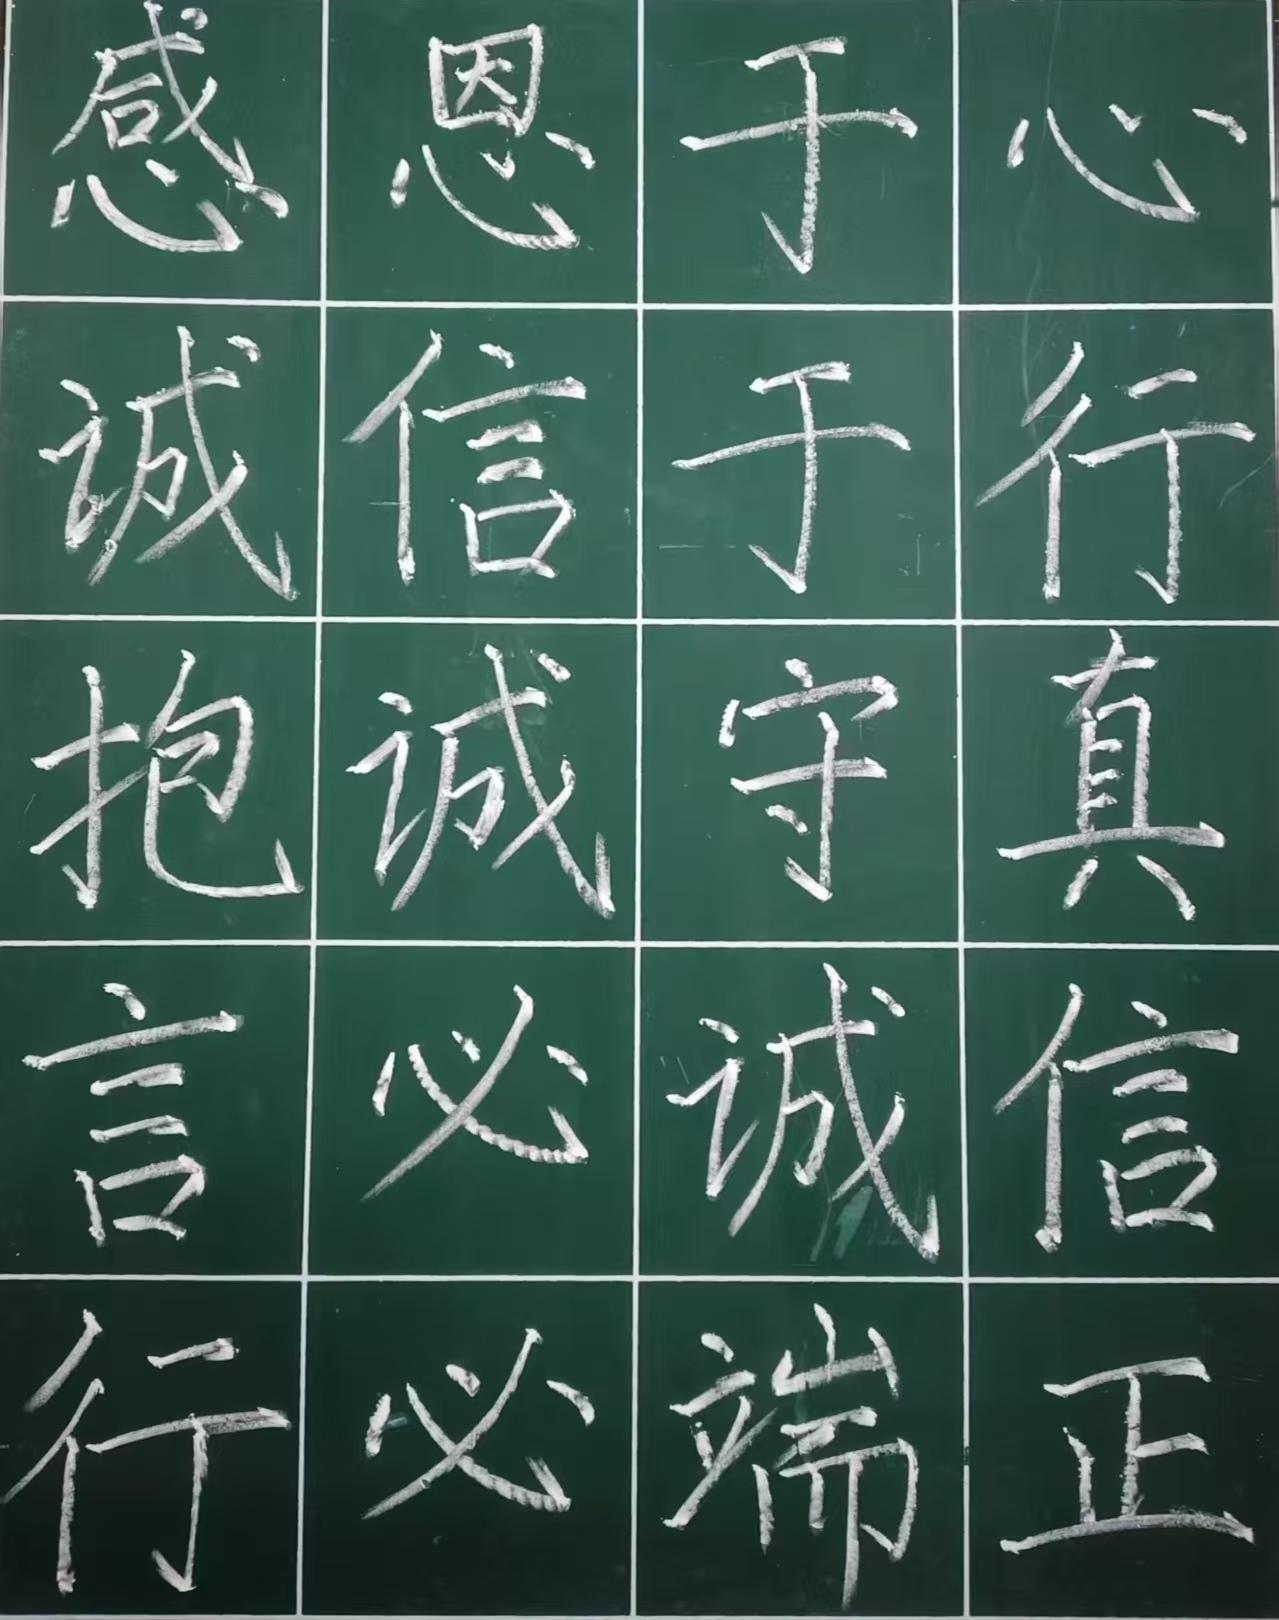 感恩于心
诚信于行
抱诚守真
言必诚信
行必端正